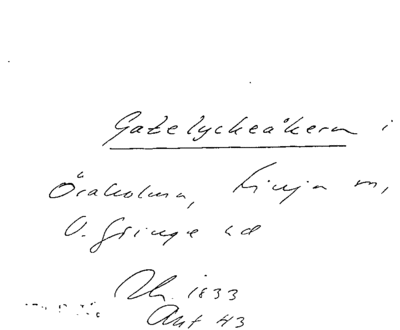 Gatelyckeåkern i
Öraholma, Linja m,
V. Göinge hd
Sk. 1833
Akt 43